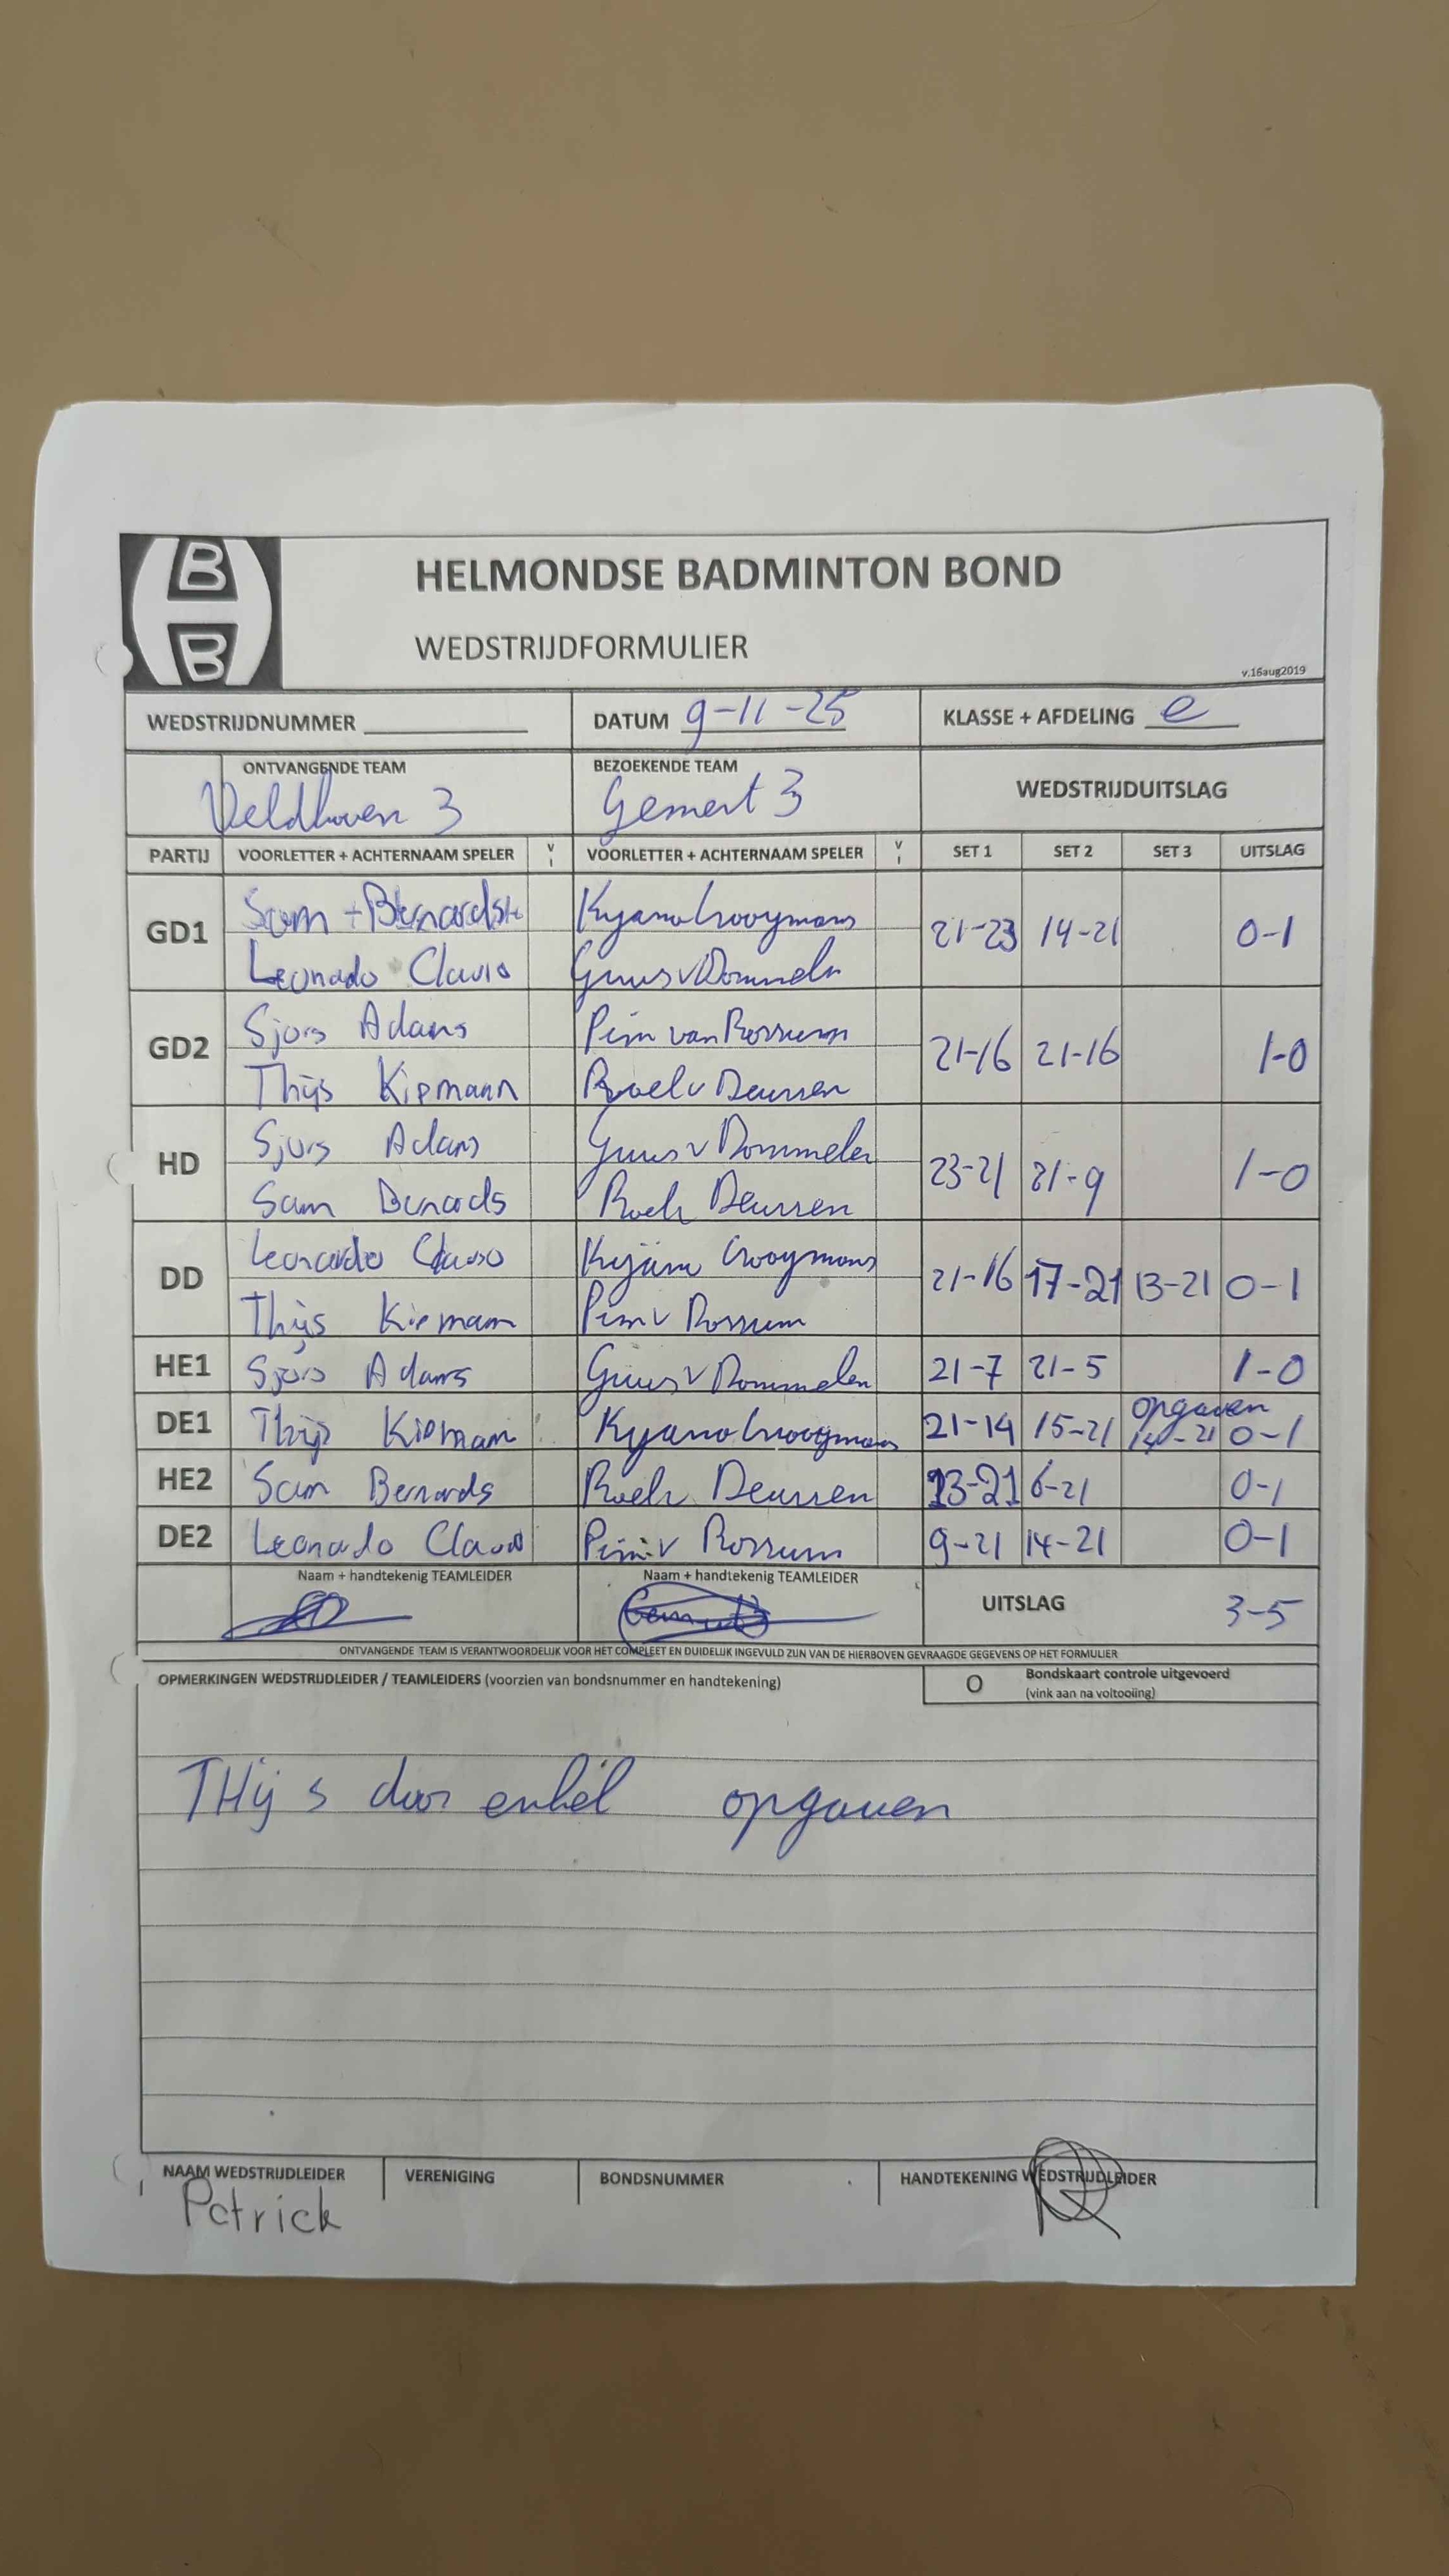 B
B
HELMONDSE BADMINTON BOND
WEDSTRIJDFORMULIER
v.16aug2019
WEDSTRIJDNUMMER
DATUM 9-11-25
KLASSE + AFDELING e
ONTVANGENDE TEAM
BEZOEKENDE TEAM
WEDSTRIJDUITSLAG
Veldhoven 3
Gemert 3
PARTIJ VOORLETTER + ACHTERNAAM SPELER V I VOORLETTER + ACHTERNAAM SPELER V I SET 1 SET 2 SET 3 UITSLAG
GD1 Sam Kyano Crooymans 21-23 14-21 0-1
Leonado Clavio Guus v Dommeln
GD2 Sjors Adams Pim van Rossum 21-16 21-16 1-0
Thijs Kipmann Roel v Deursen
HD Sjors Adams Guus v Dommelen 23-21 21-9 1-0
Sam Benards Roelv Deursen
DD Leonardo Kyano Crooymans 21-16 17-21 13-21 0-1
Thijs Kipmann Pim v Rossum
HE1 Sjors Adams Guus v Dommelen 21-7 21-5 1-0
DE1 Thijs Kipman Kyano Crooymans 21-14 15-21 opgaven 14-21 0-1
HE2 Sam Bernards Roelv Deursen 13-21 6-21 0-1
DE2 Leonado Clavio Pim v Rossum 9-21 14-21 0-1
Naam + handtekenig TEAMLEIDER
Naam + handtekenig TEAMLEIDER
Gemert 3
UITSLAG 3-5
ONTVANGENDE TEAM IS VERANTWOORDELIJK VOOR HET COMPLEET EN DUIDELIJK INGEVULD ZIJN VAN DE HIERBOVEN GEVRAAGDE GEGEVENS OP HET FORMULIER
OPMERKINGEN WEDSTRIJDLEIDER / TEAMLEIDERS (voorzien van bondsnummer en handtekening)
O Bondskaart controle uitgevoerd
(vink aan na voltooiing)
THijs door enkel opgaven
NAAM WEDSTRIJDLEIDER VERENIGING BONDSNUMMER HANDTEKENING WEDSTRIJDLEIDER
Patrick